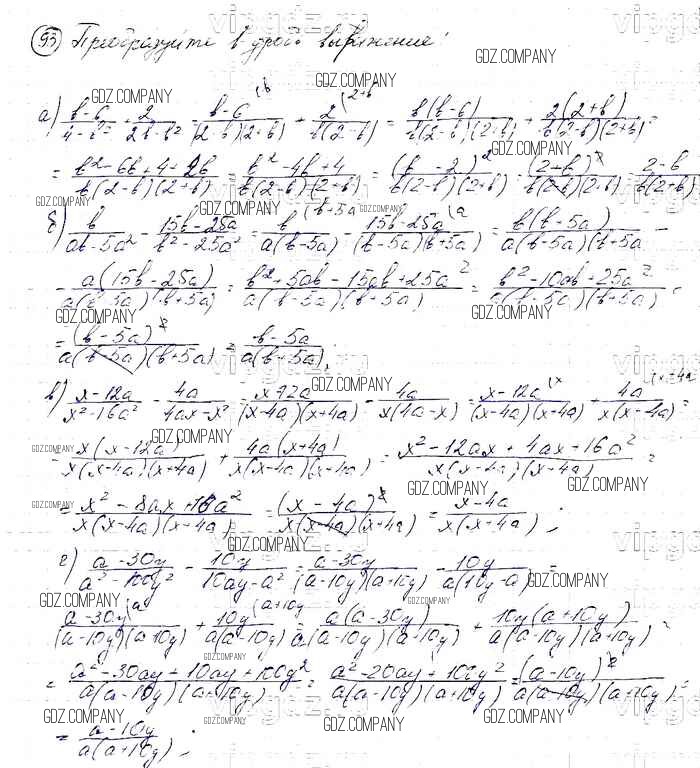 93) Преобразуйте в дробь выражение:
а) (b-6)/(4-b²) + 2/(2b-b²) = (b-6)/((2-b)(2+b)) + 2/(b(2-b)) = b(b-6)/(b(2-b)(2+b)) + 2(2+b)/(b(2-b)(2+b)) =
= (b²-6b+4+2b)/(b(2-b)(2+b)) = (b²-4b+4)/(b(2-b)(2+b)) = (b-2)²/(b(2-b)(2+b)) = (2-b)/(b(2+b))
б) b/(ab-5a²) - (15b-25a)/(b²-25a²) = b/(a(b-5a)) - (15b-25a)/((b-5a)(b+5a)) = b(b+5a)/(a(b-5a)(b+5a)) -
- a(15b-25a)/(a(b-5a)(b+5a)) = (b²+5ab-15ab+25a²)/(a(b-5a)(b+5a)) = (b²-10ab+25a²)/(a(b-5a)(b+5a)) =
= (b-5a)²/(a(b-5a)(b+5a)) = (b-5a)/(a(b+5a));
в) (x-12a)/(x²-16a²) - 4a/(4ax-x²) = (x-12a)/((x-4a)(x+4a)) - 4a/(x(4a-x)) = (x-12a)/((x-4a)(x+4a)) + 4a/(x(x-4a)) =
= x(x-12a)/(x(x-4a)(x+4a)) + 4a(x+4a)/(x(x-4a)(x+4a)) = (x²-12ax+4ax+16a²)/(x(x-4a)(x-4a)) =
= (x²-8ax+16a²)/(x(x-4a)(x-4a)) = (x-4a)²/(x(x-4a)(x+4a)) = (x-4a)/(x(x-4a));
г) (a-30y)/(a²-100y²) - 10y/(10ay-a²) = (a-30y)/((a-10y)(a+10y)) - 10y/(a(10y-a)) =
(a-30y)/((a-10y)(a+10y)) + 10y/(a(a-10y)) = a(a-30y)/(a(a-10y)(a-10y)) + 10y(a+10y)/(a(a-10y)(a+10y)) =
= (a²-30ay+10ay+100y²)/(a(a-10y)(a+10y)) = (a²-20ay+100y²)/(a(a-10y)(a+10y)) = (a-10y)²/(a(a-10y)(a+10y)) =
= (a-10y)/(a(a+10y));
GDZ.COMPANY